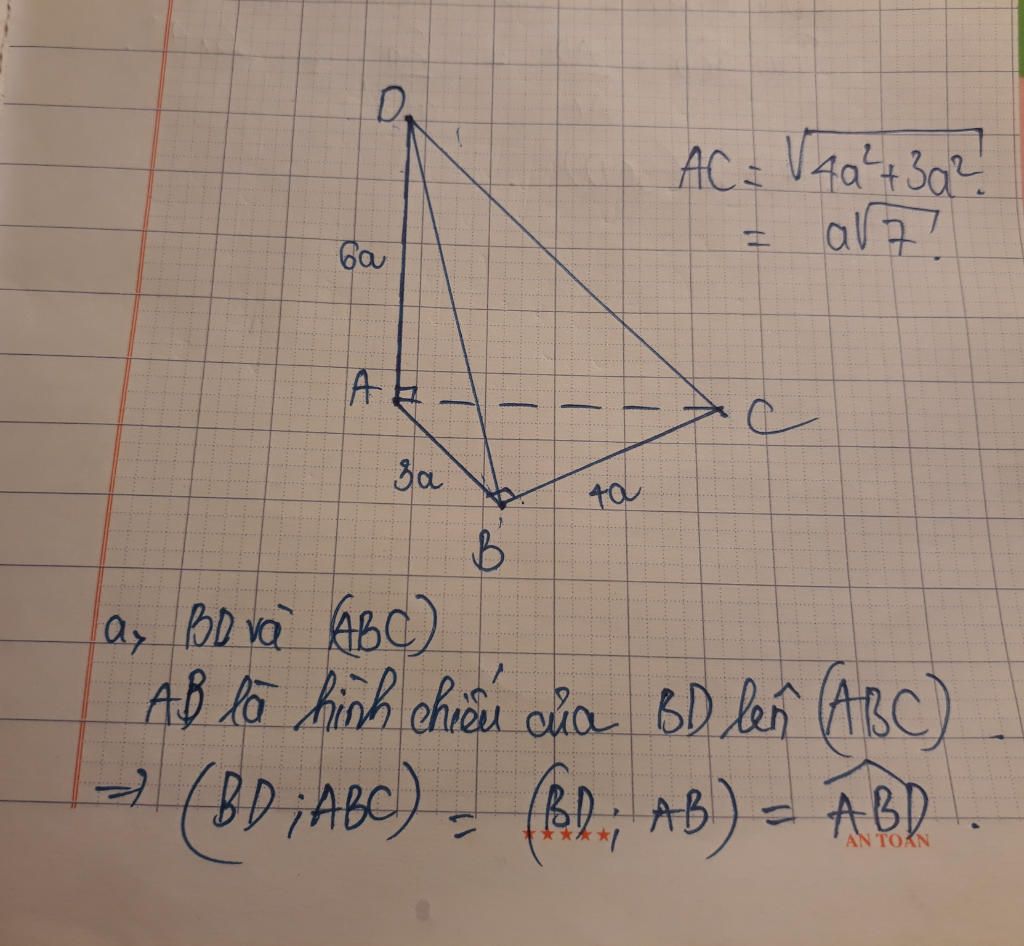 D
AC = √4a²+3a²
= a√7
6a
A
C
3a
4a
B
a, BD và (ABC)
AB là hình chiếu của BD lên (ABC).
⇒ (BD; ABC) = (BD; AB) = \widehat{ABD}.
★★★★★
AN TOÀN